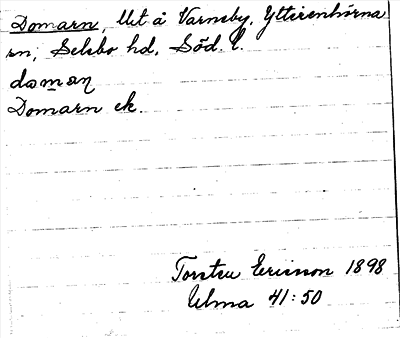 Domarn, Ut å Varnsby, Ytterenhörna
sn, Selebo hd, Söd. l.
doman
Domarn ek.
Torsten Ericsson 1898
Ulma 41:50